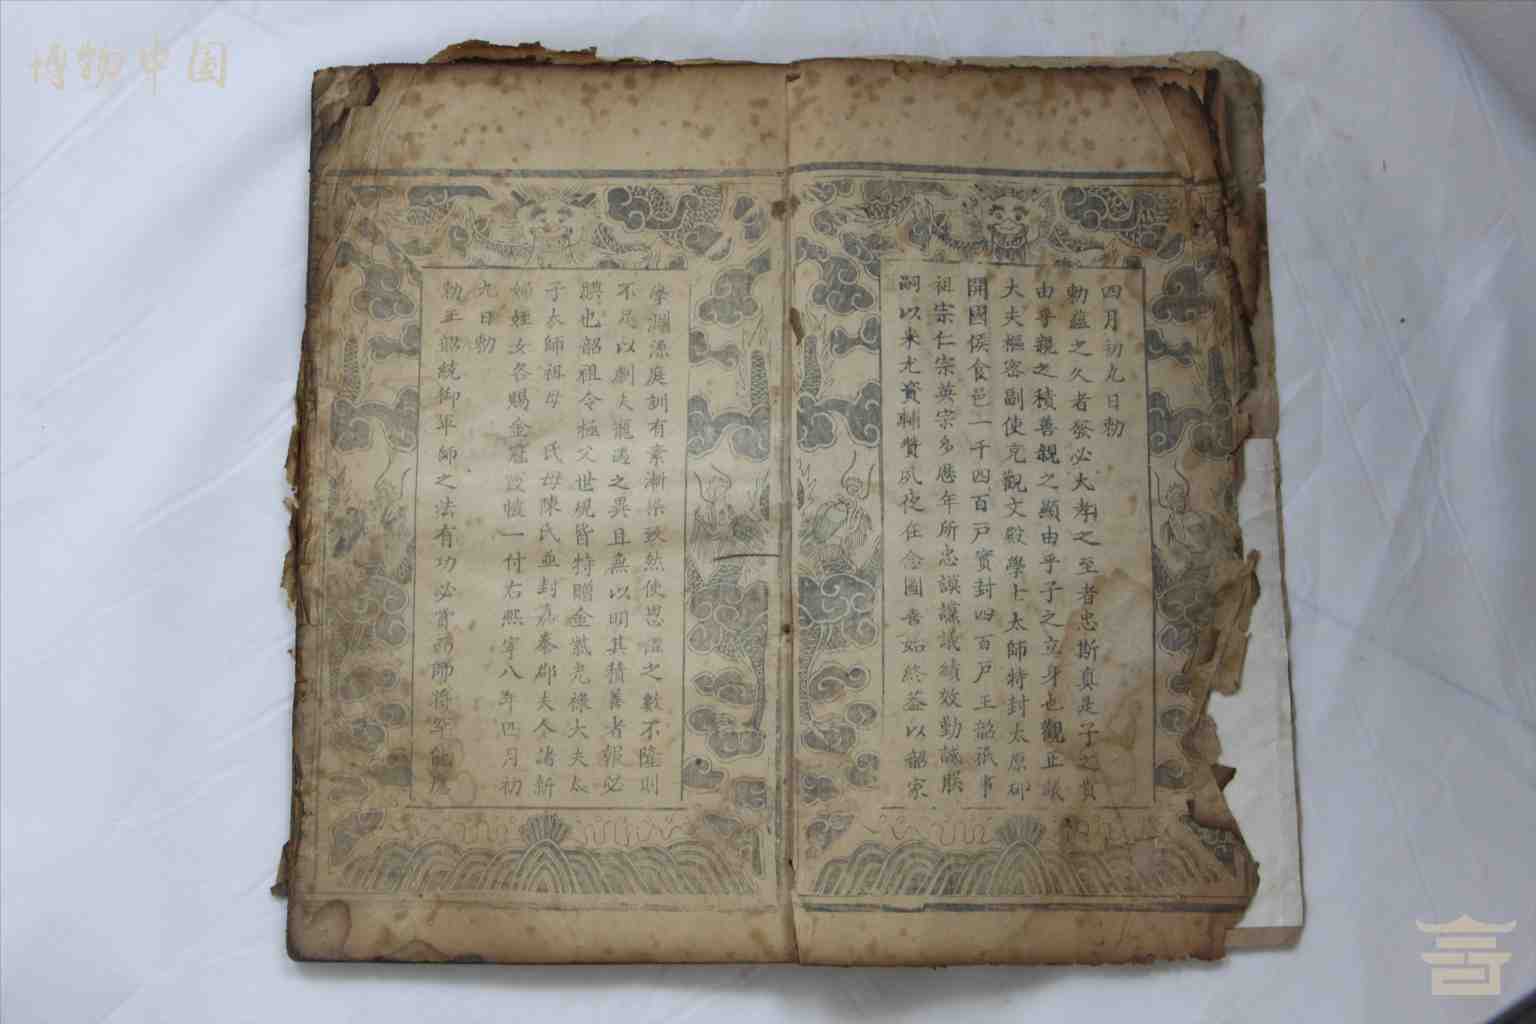 博物中国
四月初九日勅
勅蘊之久者發必大孝之至者忠斯真是子之貴
由乎親之積善親之顯由乎子之立身也觀正議
大夫樞密副使克觀文殿學士太師特封太原郡
開國侯食邑一千四百戸實封四百戸王韶祇事
祖宗仁宗英宗多歷年所忠謨讜議績效勤誠朕
嗣以来尤資輔贊夙夜在念國喜如終蓋以韶家
學淵源庭訓有素漸染致然使恩澀之數不隆則
不足以劇大龍遇之異且無以明其積善者報必
腆也韶祖令極父世規皆特贈金紫光祿大夫太
子太師祖母 氏母陳氏並封嘉泰郡夫人諸新
婦姪女各賜金冠毀帔一付右熙寧八年四月初
九日勅
勅王韶統御軍師之法有功必賞而師將罕能應